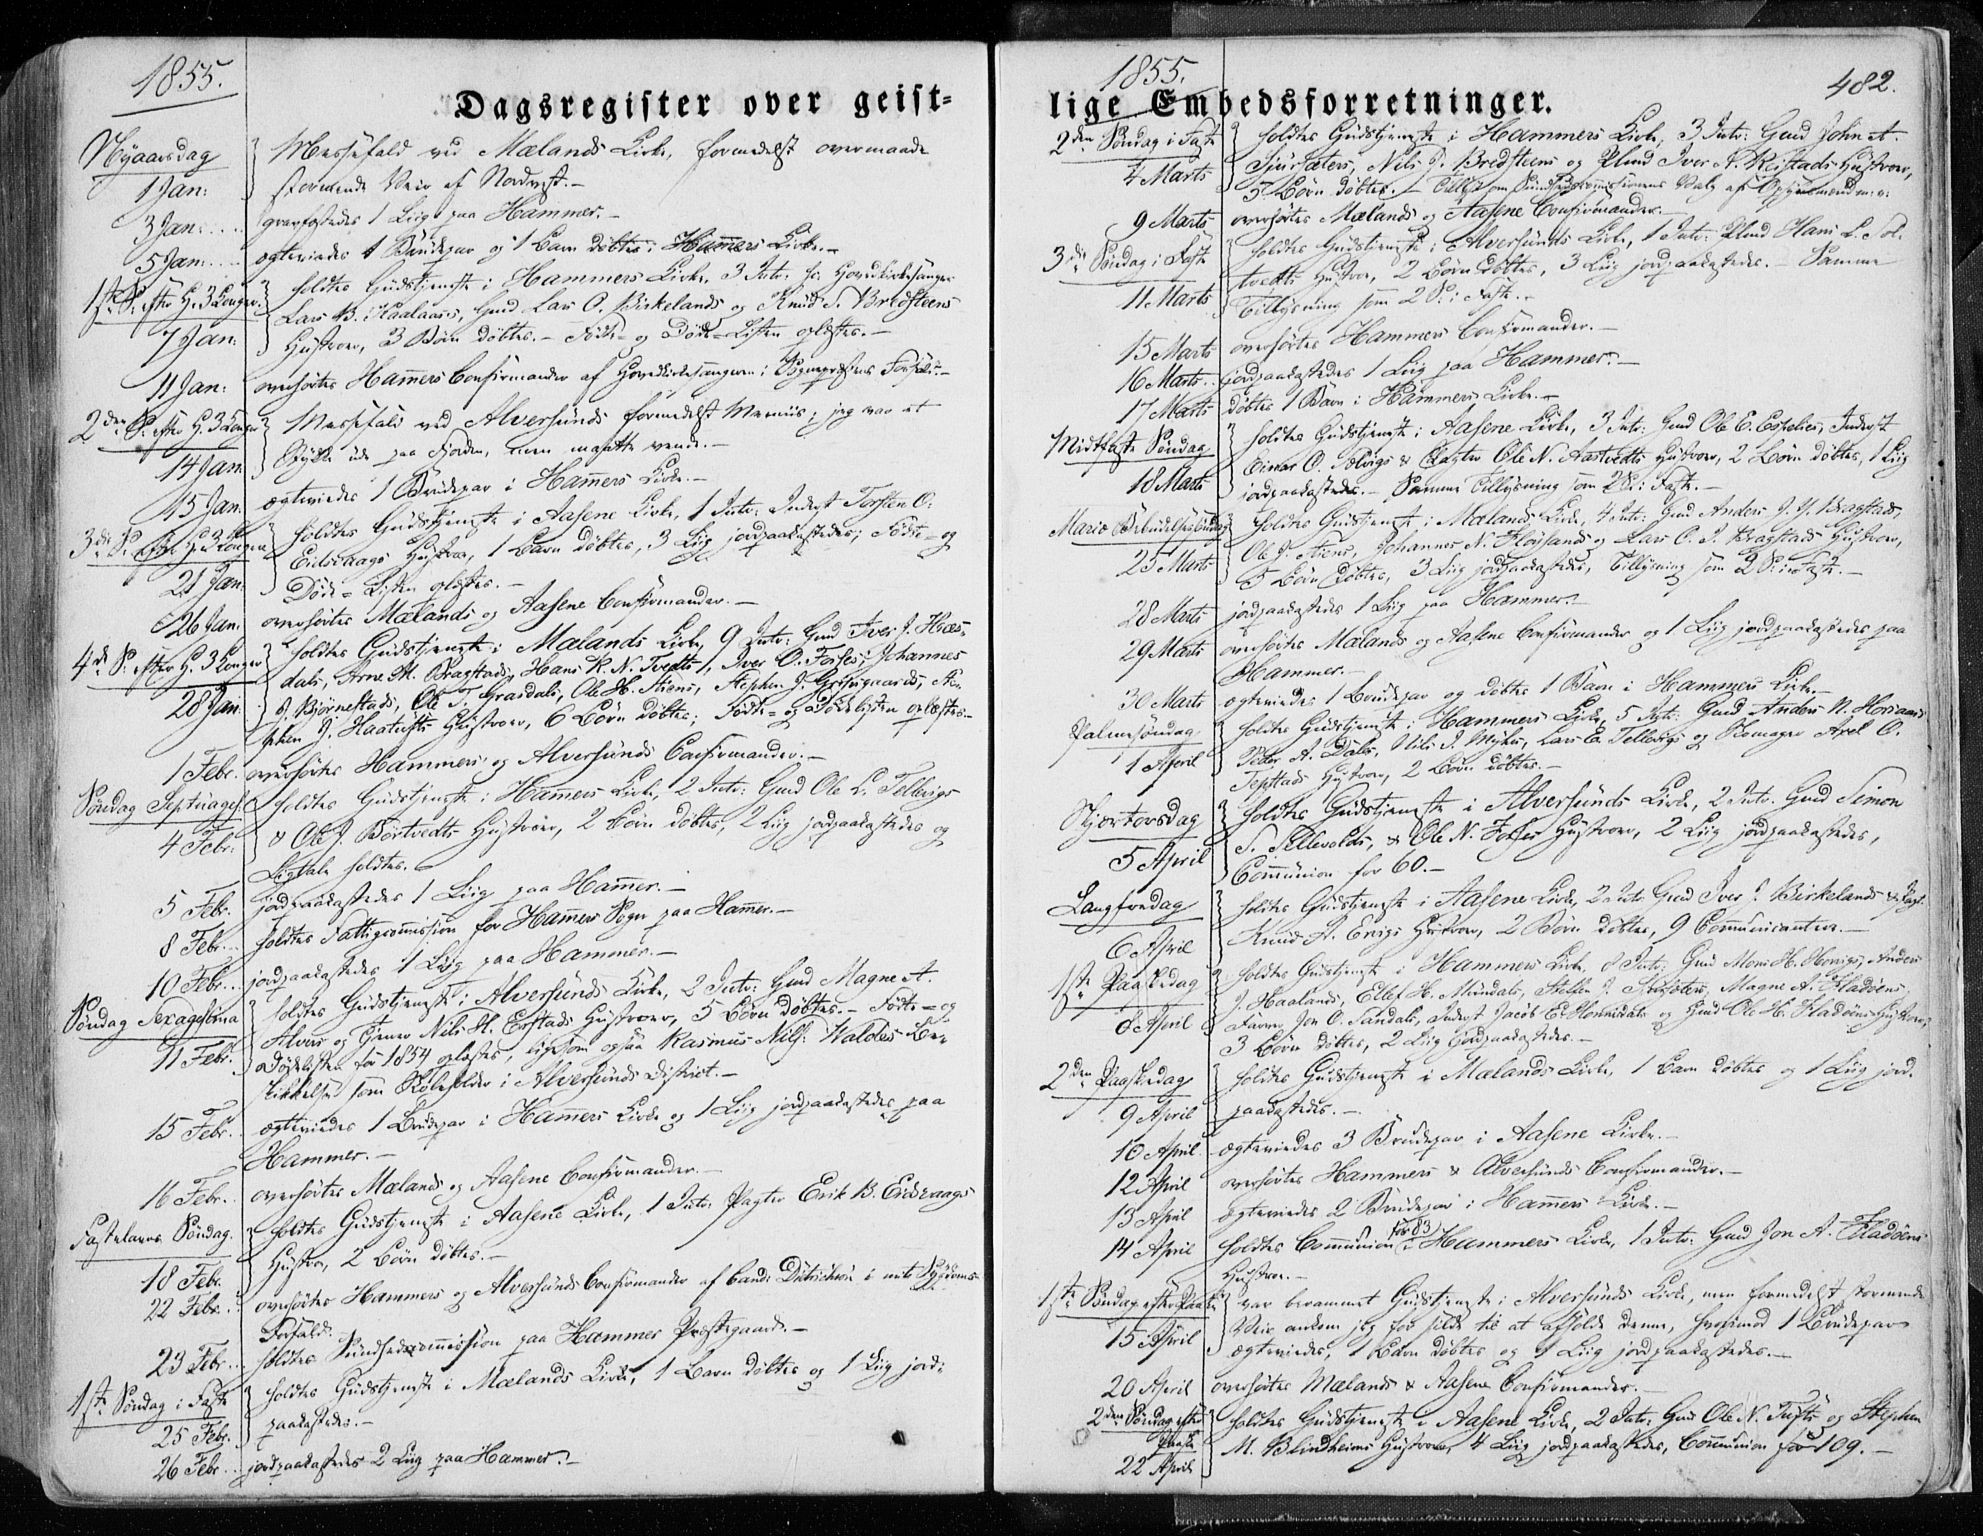 1855.
Dagsregister over geist-
Nyaarsdag
1 Jan:
Messefald ved Mælands Kirke, formedelst overmaade
stormende Veir af Nordvest.-
3 Jan:
gravfæstedes 1 Liig paa Hammer.-
5 Jan:
ægteviedes 1 Brudepar og 1 Barn døbtes i Hamers Kirke.-
1ste S: efter H. 3 Konger
7 Jan:
holdtes Gudstjeneste i Hammers Kirke. 3 Intr: fr:
Lars B. Gaard Lars O. Birkelands og Knud S. Bredsteens
Hustroer, 3 Børn døbtes.- Føds- og Døds-Listen oplæstes.-
11 Jan:
overhørtes Hamers Confirmander af Hovedkirkesangeren i Sognepræstens Forfald.-
2den S: efter H. 3 Konger
14 Jan:
Messefald ved Alversunds formedelst jeg var et
Stykke ude paa Fjorden, men maatte vende.-
15 Jan:
ægteviedes 1 Brudepar i Hamers Kirke.-
3die S: efter H. 3 Konger
21 Jan:
holdtes Gudstjeneste i Aasene Kirke, 1 Intr: Inderst Torsten O:
Eidsvaags Hustroe, 1 Barn døbtes, 3 Liig jordpaakastedes; Føds- og
Døds-Listen oplæstes.-
26 Jan:
overhørtes Mælands og Aasene Confirmander.-
4de S: efter H. 3 Konger
28 Jan:
holdtes Gudstjeneste i Mælands Kirke, 9 Intr: Gmd Iver J.
dals, Arne M. Bragstads, Hans K. N. Tvedts, Iver O. Fosses, Johannes
J. Bjørnestads, Ole T. Grasdals, Ole H. Stiens, Stephen J.
phen J. Hustroer, 6 Børn døbtes; Føds- og Dødslisten oplæstes.-
1 Febr.
overhørtes Hammers og Alversunds Confirmander.-
Søndag Septuages:
4 Febr:
holdtes Gudstjeneste i Hamers Kirke, 2 Intr: Gmd Ole L. Tellevigs
& Ole J. Børtvedts Hustroer, 2 Børn døbtes, 2 Liig jordpaakastedes og
Ligtale holdtes.
5 Febr.
jordpaakastedes 1 Liig paa Hamer.-
8 Febr.
holdtes Fattigcommission for Hamers Sogn paa Hamer.-
10 Febr.
jordpaakastedes 1 Liig paa Hammer.-
Søndag Sexagesima
11 Febr.
holdtes Gudstjeneste i Alversunds Kirke, 2 Intr: Gmd Magne A.
Alvers og Nils H. Erstads Hustroer, 5 Børn døbtes.- Føds- og
Dødslisten for 1854 oplæstes, ligesom ogsaa Rasmus Nils: Waldes Be-
skikkelse som Skoleholder i Alversunds District.-
15 Febr.
ægteviedes 1 Brudepar i Hamers Kirke og 1 Liig jordpaakastedes paa
Hammer.-
16 Febr.
overhørtes Mælands og Aasene Confirmander.-
Fastelavns Søndag.
18 Febr.
holdtes Gudstjeneste i Aasene Kirke, 1 Intr: Pagter Erik B. Eidsvaags
Hustroe, 2 Børn døbtes.-
22 Febr.
overhørtes Hammers og Alversunds Confirmander af Cand: Dietrichson i mit Sygdoms-
Forfald.
23 Febr.
holdtes Sundhedscommission paa Hammer Præstegaard.-
1ste Søndag i Faste
25 Febr.
holdtes Gudstjeneste i Mælands Kirke, 1 Barn døbtes og 1 Liig jord-
paakastedes.-
26 Febr.
jordpaakastedes 2 Liig paa Hammer.-
1855.
lige Embedsforretninger.
482.
2den Søndag i Faste
4 Marts
holdtes Gudstjeneste i Hammers Kirke, 3 Intr: Gmd John A.
Nils J. Bredsteens og Plmd Iver N. Reistads Hustroer,
5 Børn døbtes.-
9 Marts
overhørtes Mælands og Aasene Confirmander.-
3die Søndag i Faste
11 Marts
holdtes Gudstjeneste i Alversunds Kirke, 1 Intr: Plmd Hans L.
tvedts Hustroe, 2 Børn døbtes, 3 Liig jordpaakastedes.- Samme
Tillysning som 2 S: i Faste.-
15 Marts
overhørtes Hammers Confirmander.-
16 Marts
jordpaakastedes 1 Liig paa Hammer.-
17 Marts
døbtes 1 Barn i Hammers Kirke.-
Midtfaste Søndag
18 Marts
holdtes Gudstjeneste i Aasene Kirke, 3 Intr: Gmd Ole E. Inderst
Einar O. & Pagter Ole N. Aastvedts Hustroer, 2 Børn døbtes, 1 Liig
jordpaakastedes.- Samme Tillysning som 2 S: i Faste.-
Mariæ Bebudelses Søndag
25 Marts
holdtes Gudstjeneste i Mælands Kirke, 4 Intr: Gmd Anders J. J. Bragstads,
Ole J. Stiens, Johannes N. Fløisands og Lars O. J. Bragstads Hustroer,
5 Børn døbtes, 3 Liig jordpaakastedes, Tillysning som 2 S: i Faste.-
28 Marts
jordpaakastedes 1 Liig paa Hammer.-
29 Marts
overhørtes Mælands og Aasene Confirmander og 1 Liig jordpaakastedes paa
Hammer.-
30 Marts
ægteviedes 1 Brudepar og døbtes 1 Barn i Hammers Kirke.-
Palmesøndag
1 April
holdtes Gudstjeneste i Hammers Kirke, 5 Intr: Gmd Anders N.
Peder A. Dale, Nils J. Myhre, Lars E. Tellevigs og Axel O.
Hustroer, 2 Børn døbtes.-
Skjærtorsdag
5 April
holdtes Gudstjeneste i Alversunds Kirke, 2 Intr: Gmd Simon
S. & Ole N. Fosses Hustroer, 2 Liig jordpaakastedes,
Communion for 60.-
Langfredag
6 April
holdtes Gudstjeneste i Aasene Kirke, 2 Intr: Gmd Iver J. Birkelands &
Knud A. Hustroer, 2 Børn døbtes, 9 Communicantere.-
1ste Paaskedag
8 April
holdtes Gudstjeneste i Hammers Kirke, 8 Intr: Gmd Mons H. Anders
J. Haalands, Ellef H. Mundals, Magne A. Fladøens,
Jon O. Sandals, Inderst Jacob E. og Gmd Ole H. Fladøens Hustroer,
3 Børn døbtes, 2 Liig jordpaakastedes.-
2den Paaskedag
9 April
holdtes Gudstjeneste i Mælands Kirke, 1 Barn døbtes og 1 Liig jord-
paakastedes.-
10 April
ægteviedes 3 Brudepar i Aasene Kirke.-
12 April
overhørtes Hammers & Alversunds Confirmander.-
13 April
ægteviedes 2 Brudepar i Hamers Kirke.-
14 April
holdtes Communion for 83 i Hammers Kirke, 1 Intr: Gmd Jon A. Fladøens
Hustroe.-
1ste Søndag efter Paaske
15 April
var berammet Gudstjeneste i Alversunds Kirke, men formedelst stormende
Veir ankom jeg for silde til at afholde denne, hvorimod 1 Brudepar
ægteviedes, 1 Barn døbtes og 1 Liig jordpaakastedes.-
20 April
overhørtes Mælands & Aasene Confirmander.-
2den Søndag efter
Paaske
22 April
holdtes Gudstjeneste i Aasene Kirke, 2 Intr: Gmd Ole N. Tufts og Stephen
M. Blindheims Hustroer, 4 Liig jordpaakastedes, Communion for 109.-